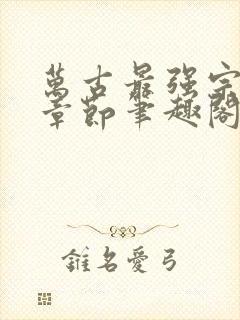 萬古最强宗
章節筆趣閣
錐名愛弓